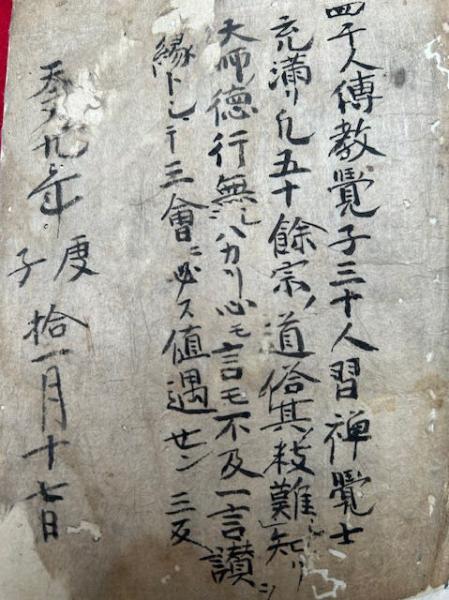 四千人傳教覺子三十人習禅覺士
充滿リ凡五十餘宗ノ道俗其数難知リ
大師德行無シハカリ心モ言モ不及一言讃シ
縁トシテ三會ニ必ス値遇セン 三反
天文九年庚子拾一月十七日